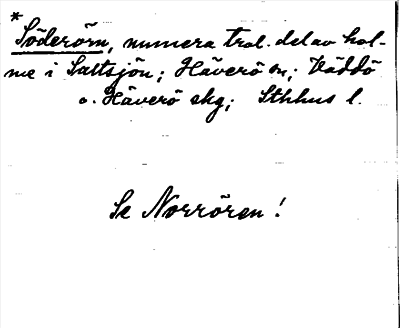 * Söderörn, numera trol. del av hol-
me i Saltsjön; Häverö sn; Väddö
o. Häverö skg; Sthlms l.
Se Norrören!